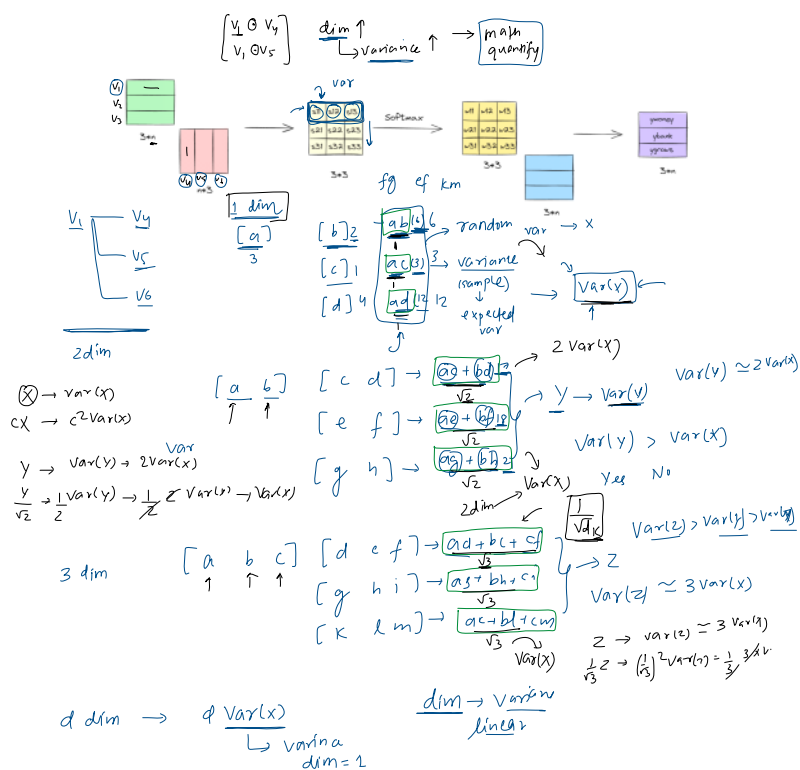 V₁ ⊙ V₄
V₁ ⊙ V₅
dim ↑
↳ variance ↑ →
math
quantify
V₁
V₂
V₃
3*n
V₄ V₅ V₆
n*3
var
s11 s12 s13
s21 s22 s23
s31 s32 s33
3*3
softmax
w11 w12 w13
w21 w22 w23
w31 w32 w33
3*3
3*n
ymoney
ybank
ygrows
3*n
fg ef km
V₁ V₄
V₅
V₆
2dim
1 dim
[a]
3
[b] 2 ab 6
[c] 1 ac (3) 3
[d] 4 ad (12) 12
random var → x
variance
(sample)
↓
expected
var
→ Var(x)
[a b]
[c d] → ac + bd
√2
[e f] → ae + bf
√2
[g h] → ag + bh
√2
2 Var(x)
Y → Var(Y)
Var(x)
2dim
Var(Y) ≃ 2Var(x)
Var(Y) > Var(x)
Yes No
X → Var(x)
cX → c²Var(x)
Var
Y → Var(Y) → 2Var(x)
Y/√2 → 1/2 Var(Y) → 1/2 2 Var(x) → Var(x)
1/√dK
3 dim
[a b c]
[d e f] → ad + be + cf
√3
[g h i] → ag + bh + ci
√3
[k l m] → ak + bl + cm
√3
Var(x)
→ Z
Var(z) > Var(y) > Var(x)
Var(z) ≃ 3Var(x)
Z → Var(z) ≃ 3 Var(x)
1/√3 Z → (1/√3)² Var(z) = 1/3
d dim → d Var(x)
↳ varina
dim = 1
dim → varian
linear